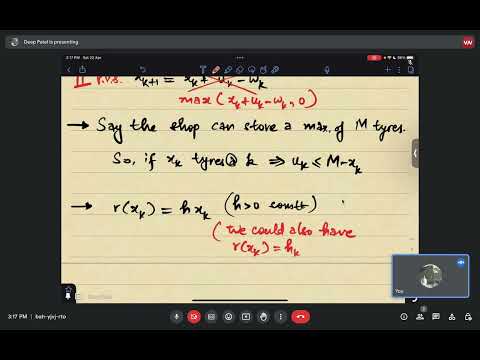 Deep Patel is presenting
VW
3:17 PM Sat 22 Apr
II x_{k+1} = x_k + u_k - w_k
max(x_k + u_k - w_k, 0)
→ Say the shop can store a max. of M tyres.
So, if x_k tyres @ k ⇒ u_k ≤ M - x_k
→ r(x_k) = h x_k (h > 0 const)
(we could also have
r(x_k) = h_k
You
3:17 PM | boh-yjvj-rto